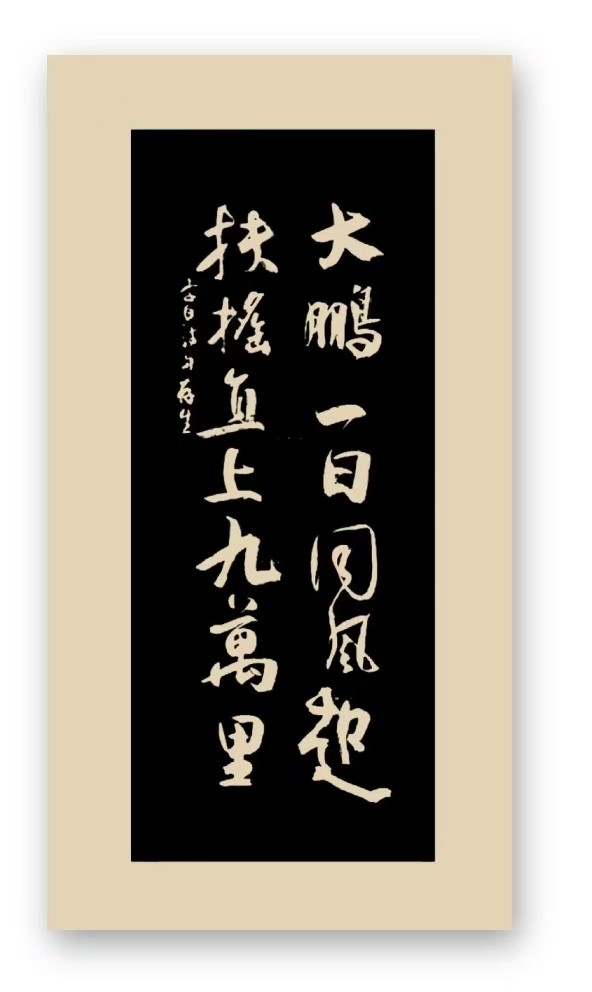 大鵬一日同風起
扶搖直上九萬里
李白詩句